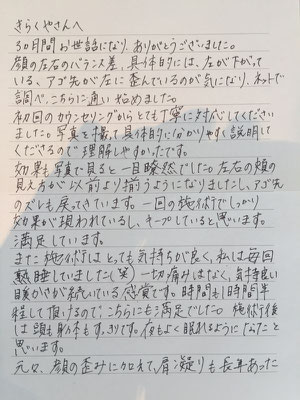 きらくやさんへ
3ヵ月間お世話になり、ありがとうございました。
顔の左右のバランス差、具体的には、左が下がって
いる、アゴ先が左に歪んでいるのが気になり、ネットで
調べ、こちらに通い始めました。
初回のカウンセリングからとても丁寧に対応してください
ました。写真を撮って具体的に分かりやすく説明して
くださるので理解しやすかったです。
効果も写真で見ると一目瞭然でした。左右の頬の
見え方が以前より揃うようになりましたし、アゴ先
のズレも戻ってきています。一回の施術でしっかり
効果が現われているし、キープしていると思います。
満足しています。
また施術はとっても気持ちが良く、私は毎回
熟睡していました(笑) 一切痛みはなく、気持良い
暖かさが続いている感覚です。時間も1時間半
程して頂けるので、こちらにも満足でした。施術後
は頭も身体もすっきりです。夜もよく眠れるようになったと
思います。
元々、顔の歪みに加えて、肩凝りも長年あった